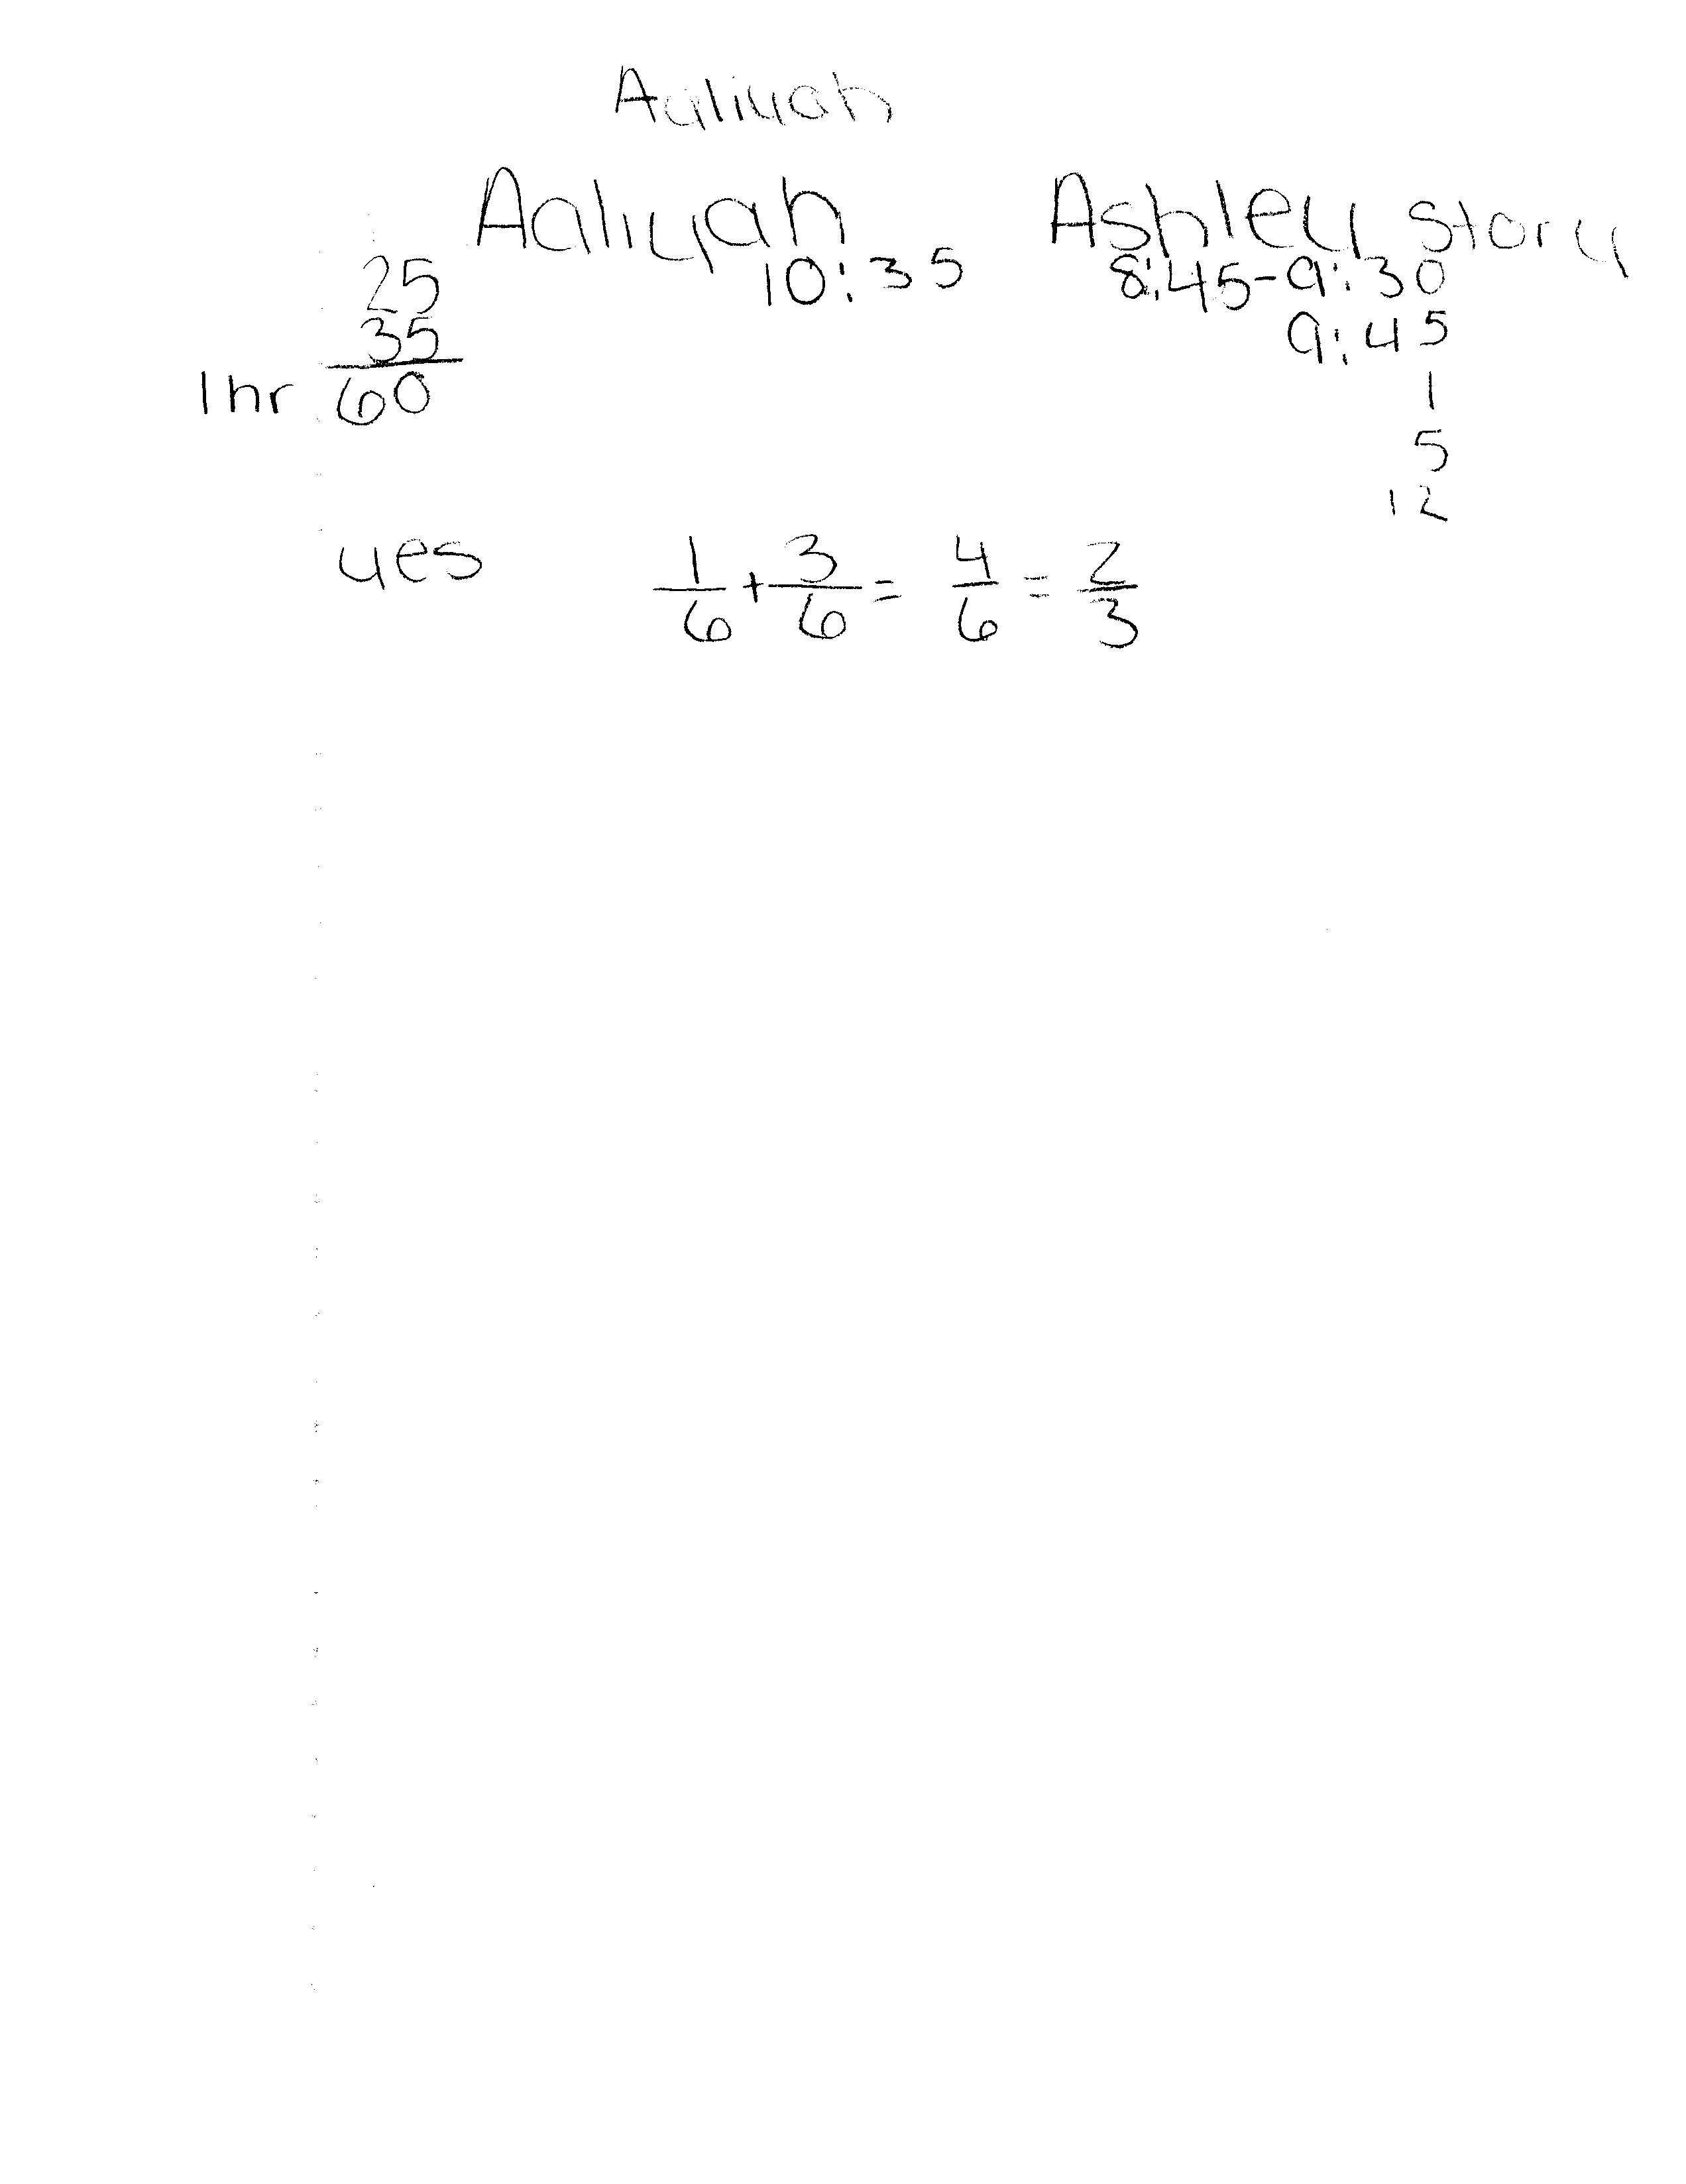 Aaliyah
Aaliyah Ashley story
25 10:35 8:45-9:30
35 9:45
1hr 60 1
5
12
yes 1/6 + 3/6 = 4/6 = 2/3